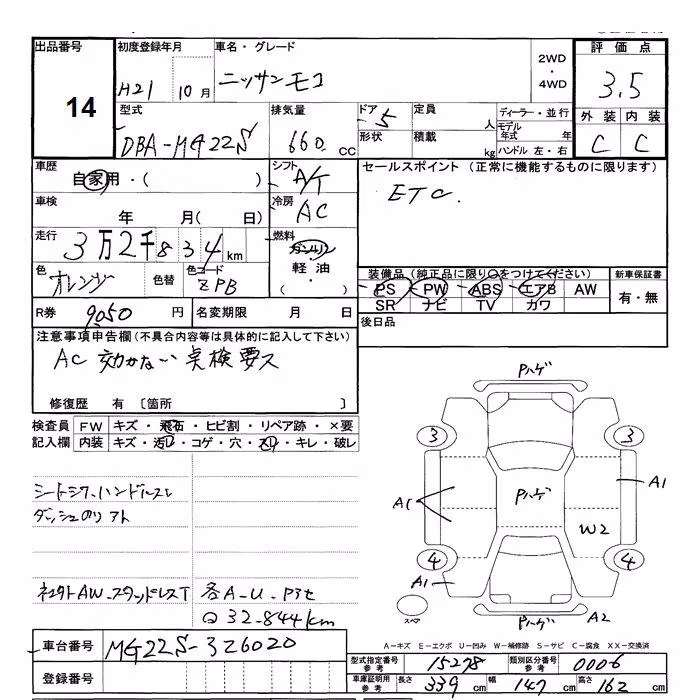 出品番号
14
初度登録年月
H21 10月
車名・グレード
ニッサンモコ
2WD
・
4WD
評価点
3.5
外装 内装
C C
型式
DBA-MG22S
排気量
660 cc
ドア 5
形状
定員 人
積載 kg
ディーラー・並行
モデル年式 年
ハンドル 左・右
車歴
自家用・( )
シフト
A/T
セールスポイント (正常に機能するものに限ります)
ETC.
車検
年 月( 日)
冷房
AC
走行
3万2千834km
燃料
ガソリン
軽油
( ・ )
色
オレンジ
色替
色コード
ZPB
装備品(純正品に限り○をつけてください)
新車保証書
PS PW ABS エアB AW
SR ナビ TV カワ
有・無
R券 9050円
名変期限 月 日
後日品
注意事項申告欄(不具合内容等は具体的に記入して下さい)
AC 効かない 点検要ス
修復歴 有 〔箇所 〕
検査員 FW キズ・飛石・ヒビ割・リペア跡・×要
記入欄 内装 キズ・汚レ・コゲ・穴・スレ・キレ・破レ
シートシワ、ハンドルスレ
ダッシュのリアト
各A-U-Pアセ
32-844km
車台番号 MG22S-326020
登録番号
Pハゲ
3 3
A1
A1
Pハゲ
W2
4 4
A1
スペア
Pハゲ
A2
A-キズ E-エクボ U-凹み W-補修跡 S-サビ C-腐食 XX-交換済
型式指定番号参考 15278
類別区分番号参考 0006
車庫証明用参考 長さ 339cm 幅 147cm 高さ 162cm